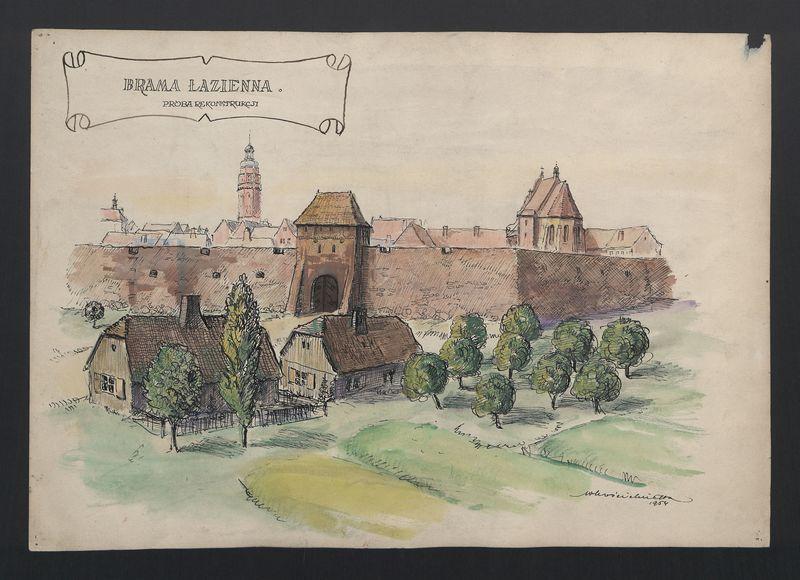 BRAMA ŁAZIENNA.
PRÓBA REKONSTRUKCJI
1954